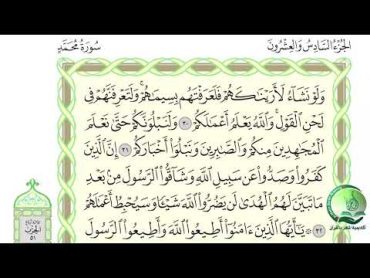 الجُزْءُ السَّادِسُ وَالعِشْرُونَ
سُورَةُ مُحَمَّدٍ
وَلَوْ نَشَآءُ لَأَرَيْنَٰكَهُمْ فَلَعَرَفْتَهُم بِسِيمَٰهُمْ ۚ وَلَتَعْرِفَنَّهُمْ فِى
لَحْنِ ٱلْقَوْلِ ۚ وَٱللَّهُ يَعْلَمُ أَعْمَٰلَكُمْ ٣٠ وَلَنَبْلُوَنَّكُمْ حَتَّىٰ نَعْلَمَ
ٱلْمُجَٰهِدِينَ مِنكُمْ وَٱلصَّٰبِرِينَ وَنَبْلُوَا۟ أَخْبَارَكُمْ ٣١ إِنَّ ٱلَّذِينَ
كَفَرُوا۟ وَصَدُّوا۟ عَن سَبِيلِ ٱللَّهِ وَشَآقُّوا۟ ٱلرَّسُولَ مِنۢ بَعْدِ
مَا تَبَيَّنَ لَهُمُ ٱلْهُدَىٰ لَن يَضُرُّوا۟ ٱللَّهَ شَيْـًٔا وَسَيُحْبِطُ أَعْمَٰلَهُمْ
٣٢ ۞ يَٰٓأَيُّهَا ٱلَّذِينَ ءَامَنُوٓا۟ أَطِيعُوا۟ ٱللَّهَ وَأَطِيعُوا۟ ٱلرَّسُولَ
الحزب
٥١